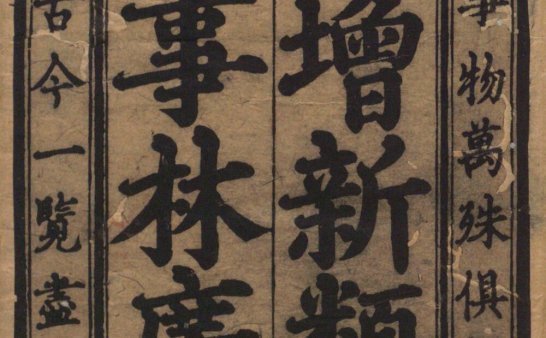 事物萬殊俱
增新類
事林廣
古今一覽盡